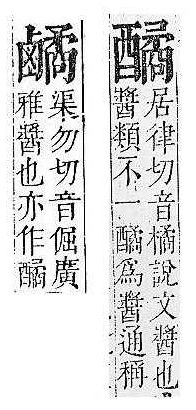 䤎
居律切音橘說文醬也
醬類不一䤎為醬通稱
渠勿切音倔廣
雅醬也亦作䤎